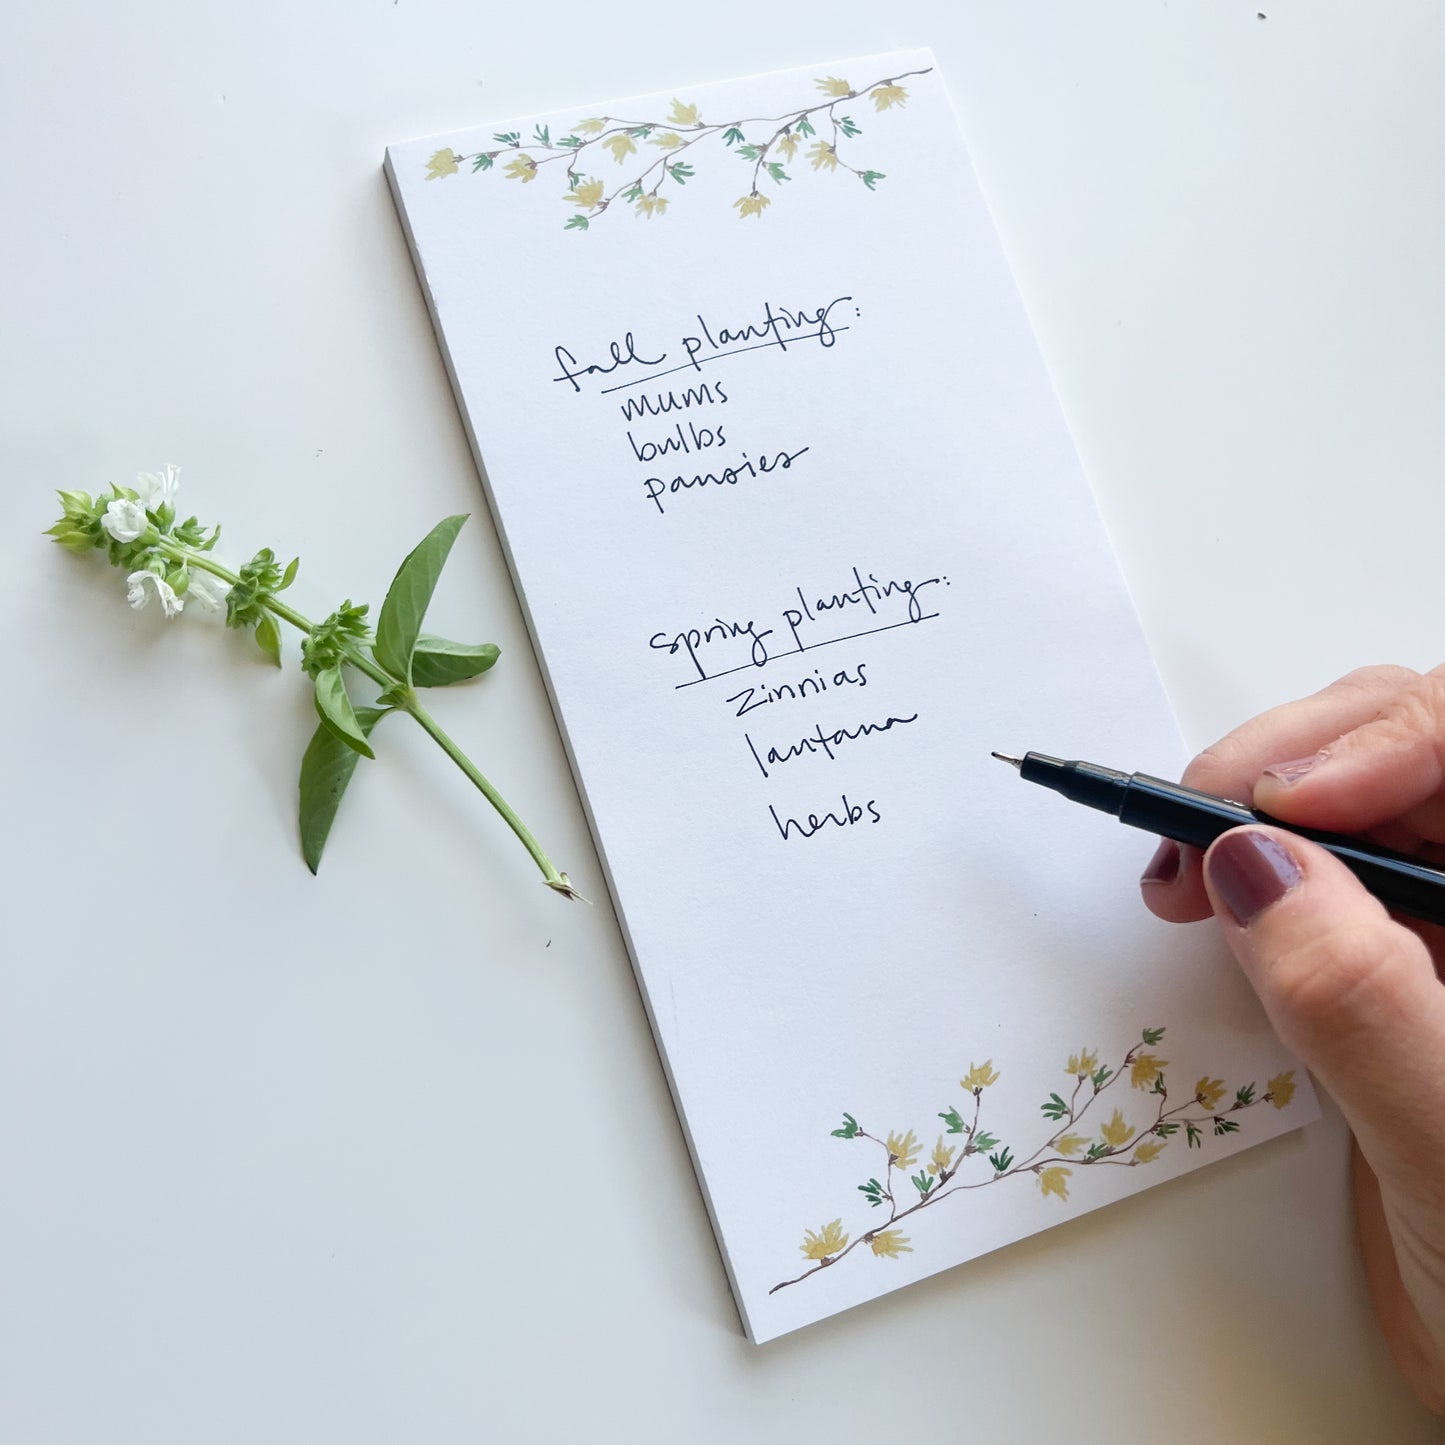 fall planting:
mums
bulbs
pansies
spring planting:
zinnias
lantana
herbs